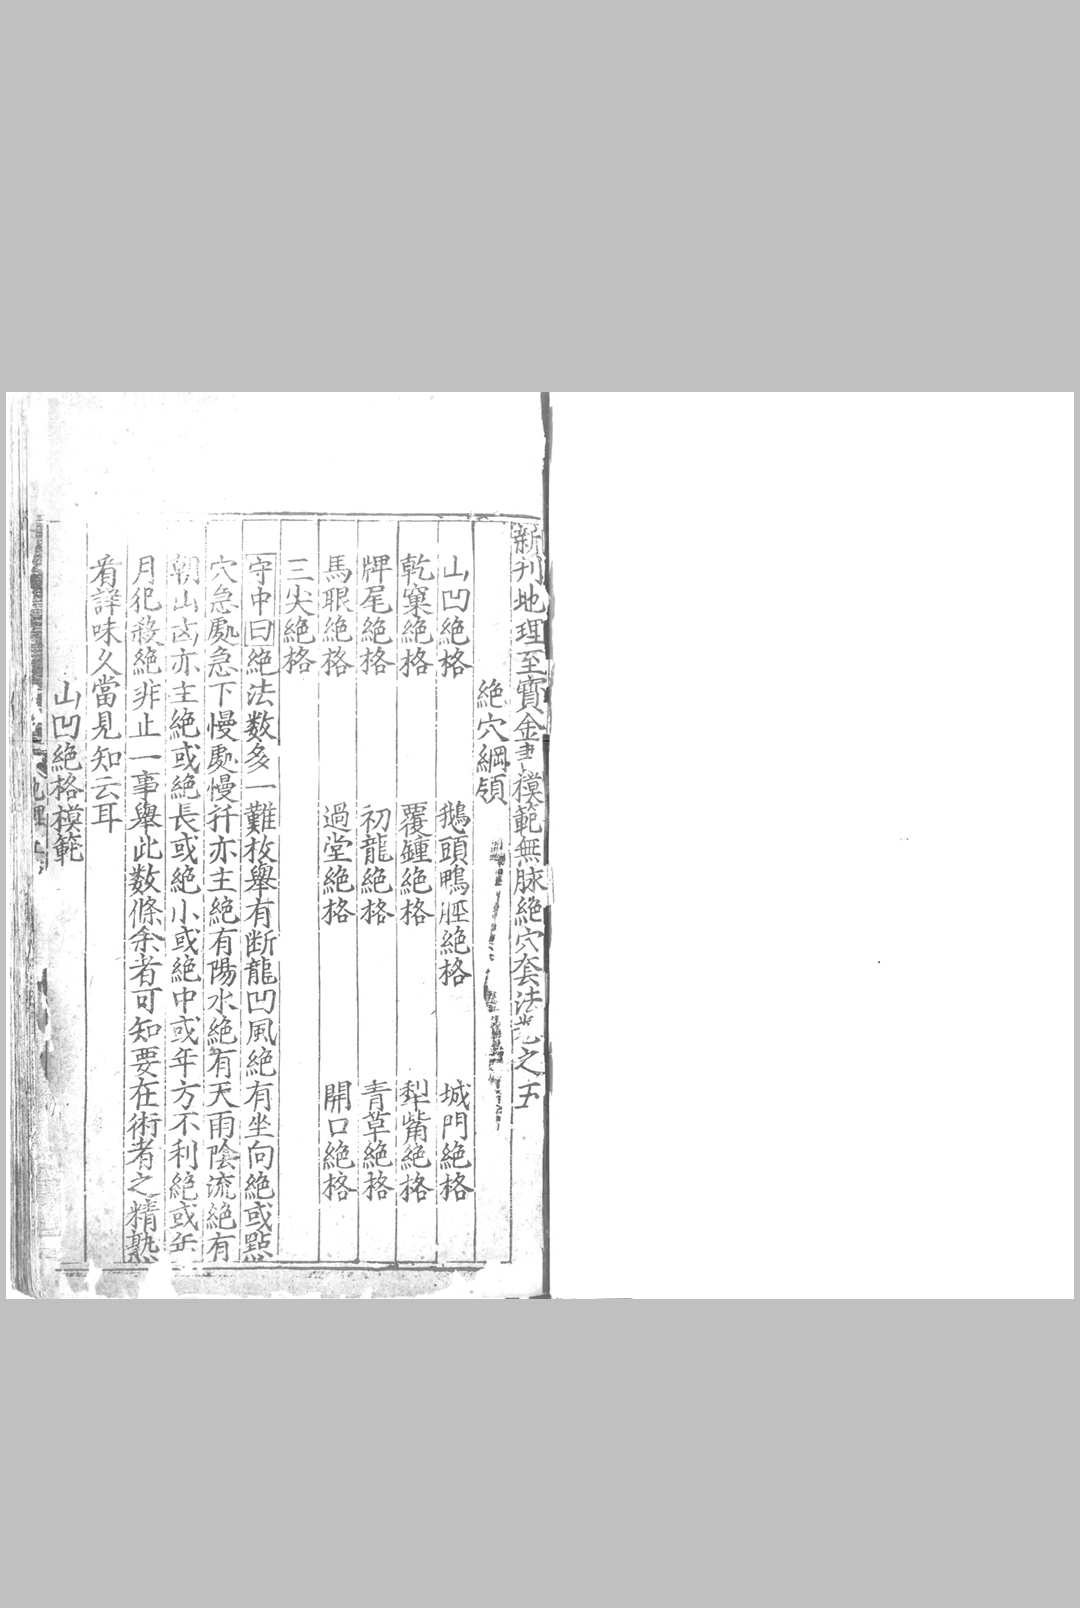 新刊地理至寳金書模範無脉絶穴套法卷之五
絶穴綱領
山凹絶格 鵝頭鴨脛絶格 城門絶格
乾窠絶格 覆鍾絶格 犁觜絶格
牌尾絶格 初龍絶格 青草絶格
馬眼絶格 過堂絶格 開口絶格
三尖絶格
守中曰絶法数多一難枚舉有断龍凹風絶有坐向絶或㸃
穴急處急下慢處慢扦亦主絶有陽水絶有天雨陰流絶有
朝山凶亦主絶或絶長或絶小或絶中或年方不利絶或年
月犯殺絶非止一事舉此数條余者可知要在術者之精熟
看詳味久當見知云耳
山凹絶格模範